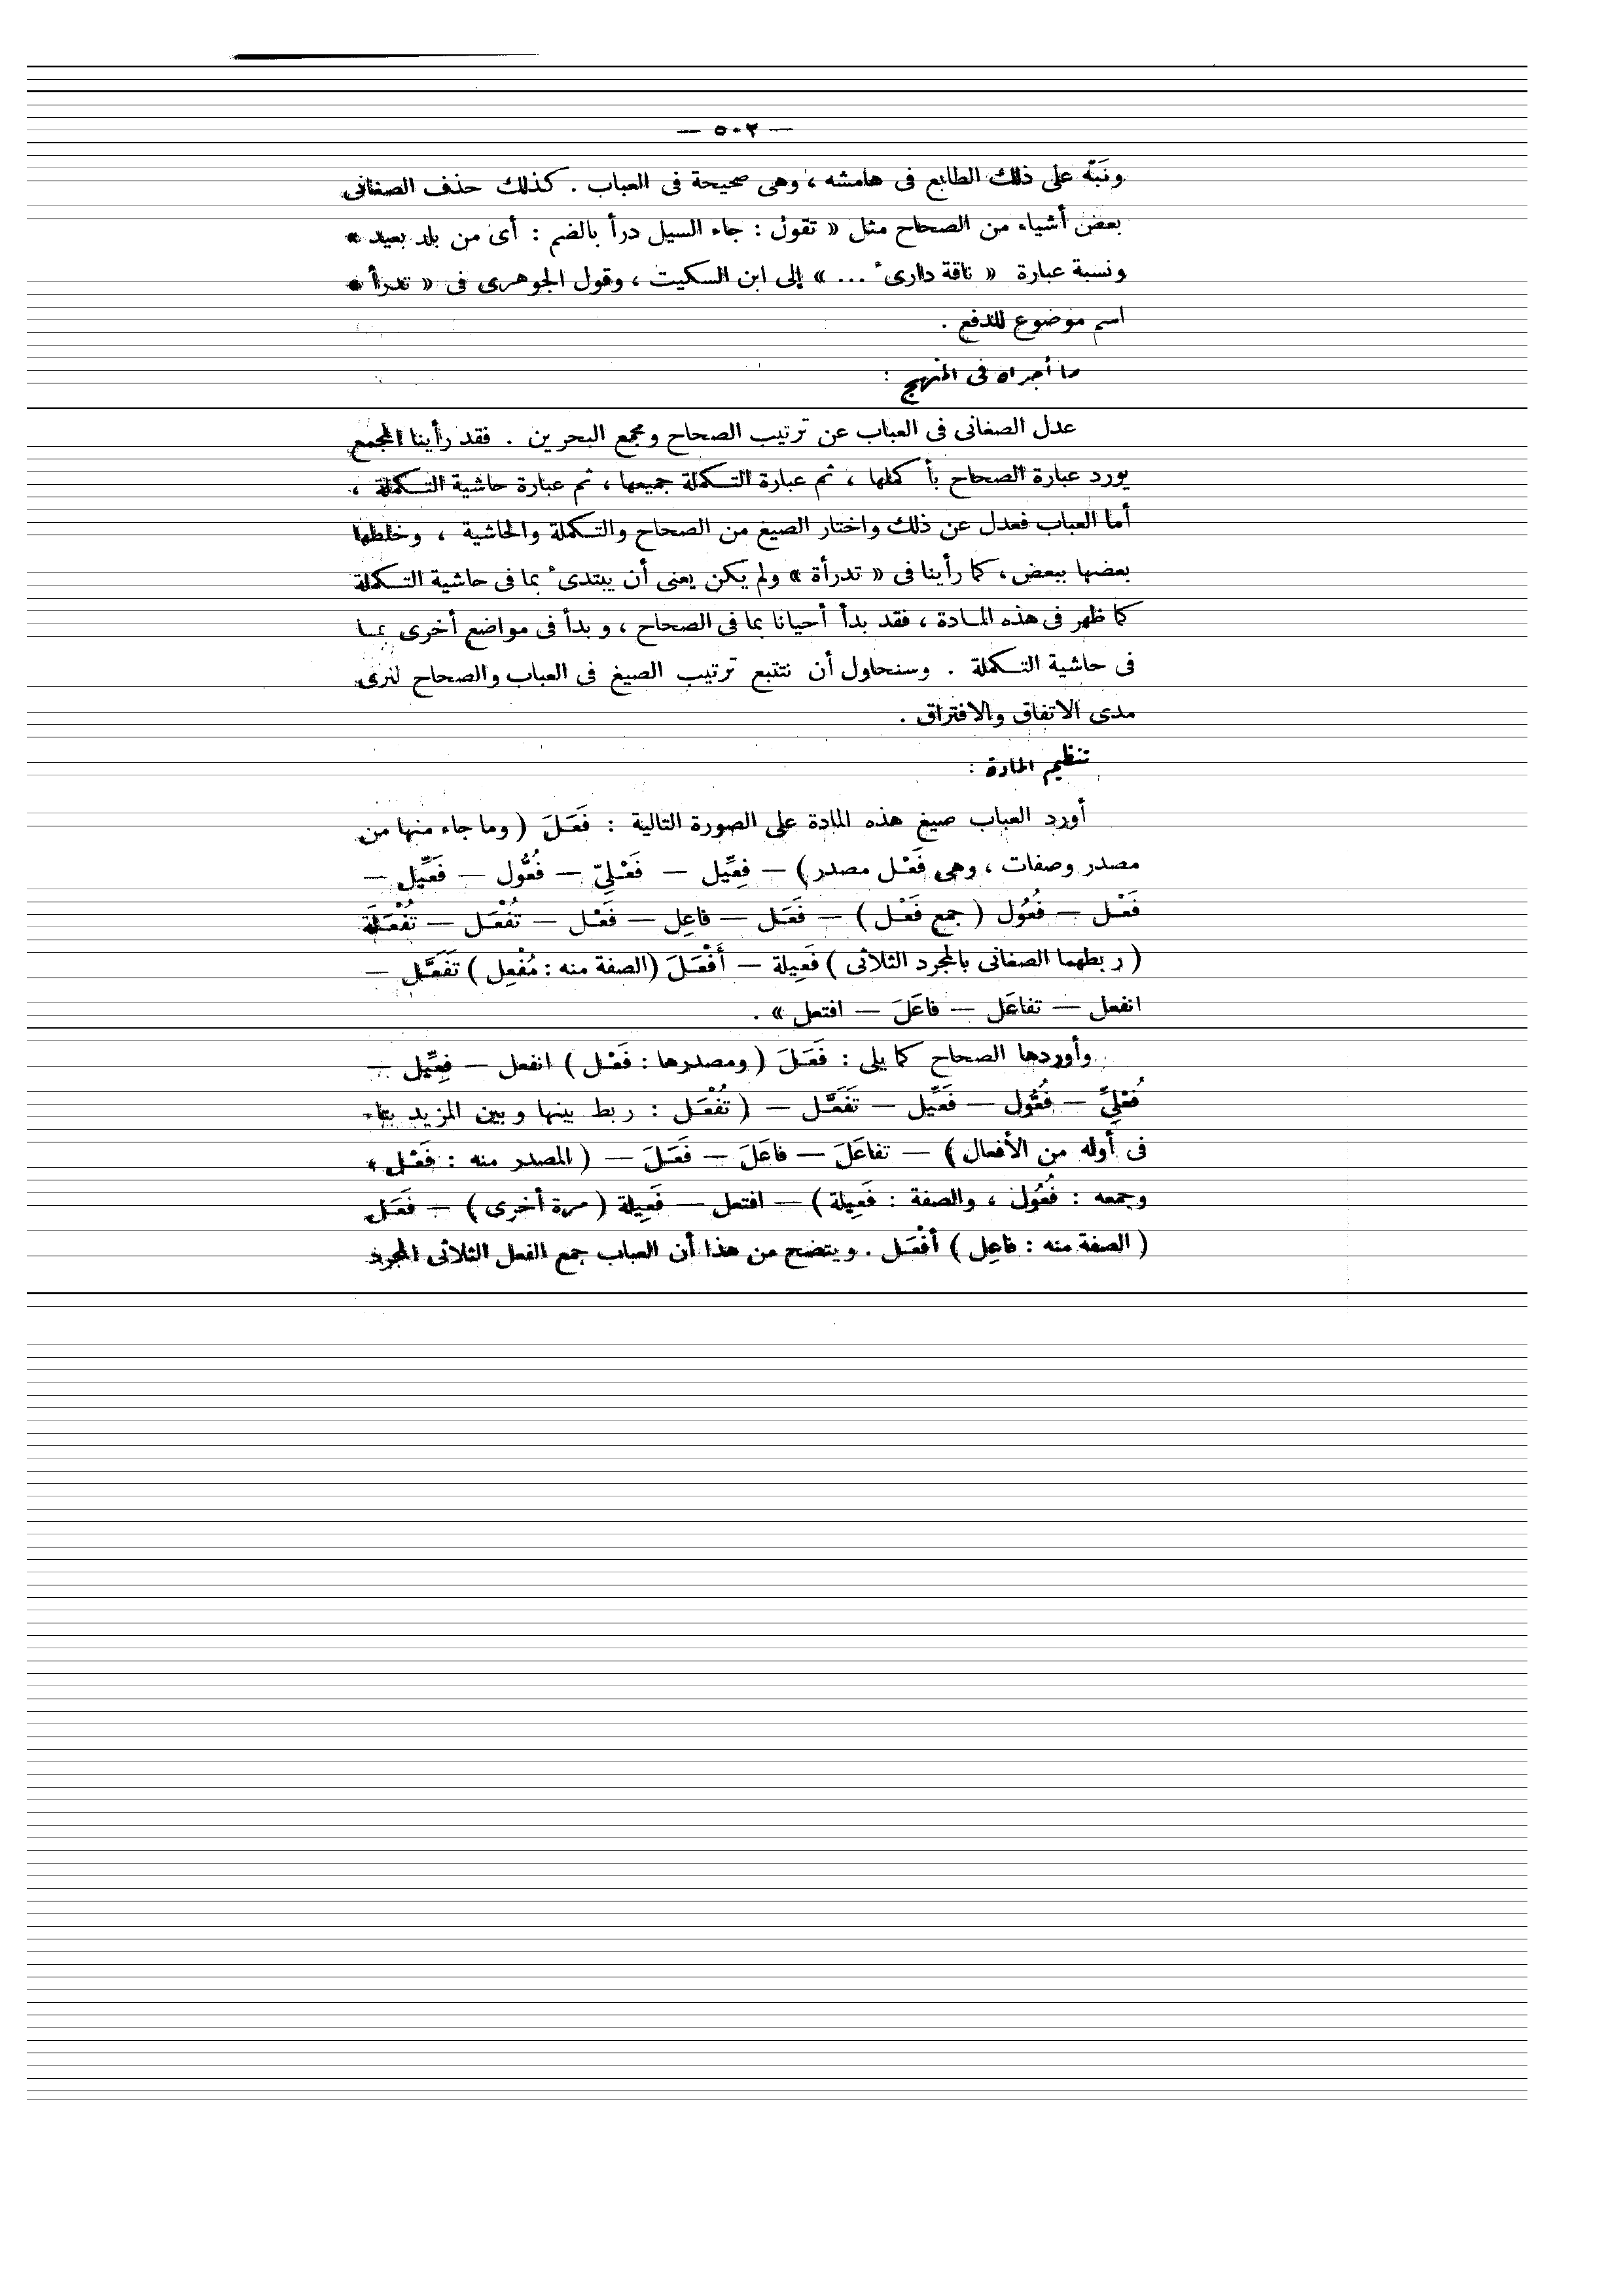 — ٥٠٢ —
ونَبّه على ذلك الطابع فى هامشه ، وهى صحيحة فى العباب . كذلك حذف الصغانى
بعض أشياء من الصحاح مثل « تقول : جاء السيل درأ بالضم : أى من بلد بعيد »
ونسبة عبارة « ناقة دارىء ... » إلى ابن السكيت ، وقول الجوهرى فى « تدرأ »
اسم موضوع للدفع .
ما أجراه فى المنهج :
عدل الصغانى فى العباب عن ترتيب الصحاح ومجمع البحرين . فقد رأينا المجمع
يورد عبارة الصحاح بأكملها ، ثم عبارة التكملة جميعها ، ثم عبارة حاشية التكملة ،
أما العباب فعدل عن ذلك واختار الصيغ من الصحاح والتكملة والحاشية ، وخلطها
بعضها ببعض ، كما رأينا فى « تدرأة » ولم يكن يعنى أن يبتدىء بما فى حاشية التكملة
كما ظهر فى هذه المادة ، فقد بدأ أحيانا بما فى الصحاح ، وبدأ فى مواضع أخرى بما
فى حاشية التكملة . وسنحاول أن نتتبع ترتيب الصيغ فى العباب والصحاح لنرى
مدى الاتفاق والافتراق .
تنظيم المادة :
أورد العباب صيغ هذه المادة على الصورة التالية : فَعَلَ ( وما جاء منها من
مصدر وصفات ، وهى فَعْل مصدر ) — فِعِّيل — فَعْلِىّ — فُعُّول — فَعِّيل —
فَعْل — فُعُول ( جمع فَعْل ) — فَعَل — فاعِل — فَعْل — تُفْعَل — تُفْعَلَة
( ربطهما الصغانى بالمجرد الثلاثى ) فَعِيلة — أَفْعَلَ ( الصفة منه : مُفْعِل ) تَفَعَّل —
انفعل — تفاعَل — فاعَلَ — افتعل » .
وأوردها الصحاح كما يلى : فَعَلَ ( ومصدرها : فَعْل ) انفعل — فِعِّيل —
فُعْلِىّ — فُعُّول — فَعِّيل — تَفَعَّل — ( تُفْعَل : ربط بينها وبين المزيد بتاء
فى أوله من الأفعال ) — تفاعَلَ — فاعَلَ — فَعَلَ — ( المصدر منه : فَعْل ،
وجمعه : فُعُول ، والصفة : فَعِيلة ) — افتعل — فَعِيلة ( مرة أخرى ) — فَعَل
( الصفة منه : فاعِل ) أفْعَل . ويتضح من هذا أن العباب جمع الفعل الثلاثى المجرد